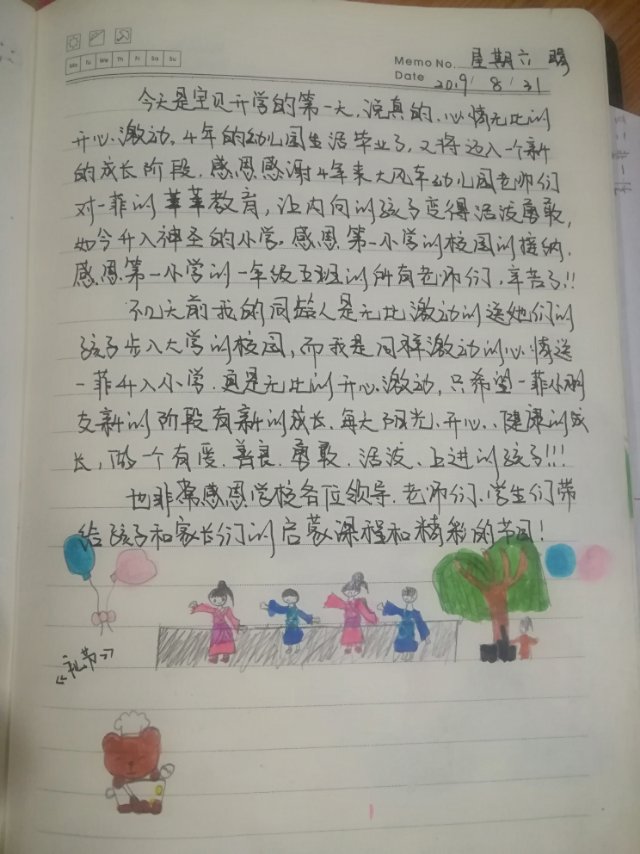 Mo Tu We Th Fr Sa Su
Memo No. 星期六 晴
Date 2019 / 8 / 31
今天是宝贝开学的第一天,说真的,心情无比的
开心、激动。4年的幼儿园生活毕业了,又将迈入一个新
的成长阶段,感恩感谢4年来大风车幼儿园老师们
对一菲的莘莘教育,让内向的孩子变得活泼勇敢,
如今升入神圣的小学。感恩第一小学的校园的接纳,
感恩第一小学的一年级五班的所有老师们,辛苦了!!
不几天前我的同龄人是无比激动的送她们的
孩子步入大学的校园,而我是同样激动的心情送
一菲升入小学,真是无比的开心、激动,只希望一菲小朋
友新的阶段有新的成长、每天阳光、开心、健康的成
长,做一个有爱、善良、勇敢、活泼、上进的孩子!!!
也非常感恩学校各位领导、老师们、学生们带
给孩子和家长们的启蒙课程和精彩的节目!
《礼节》